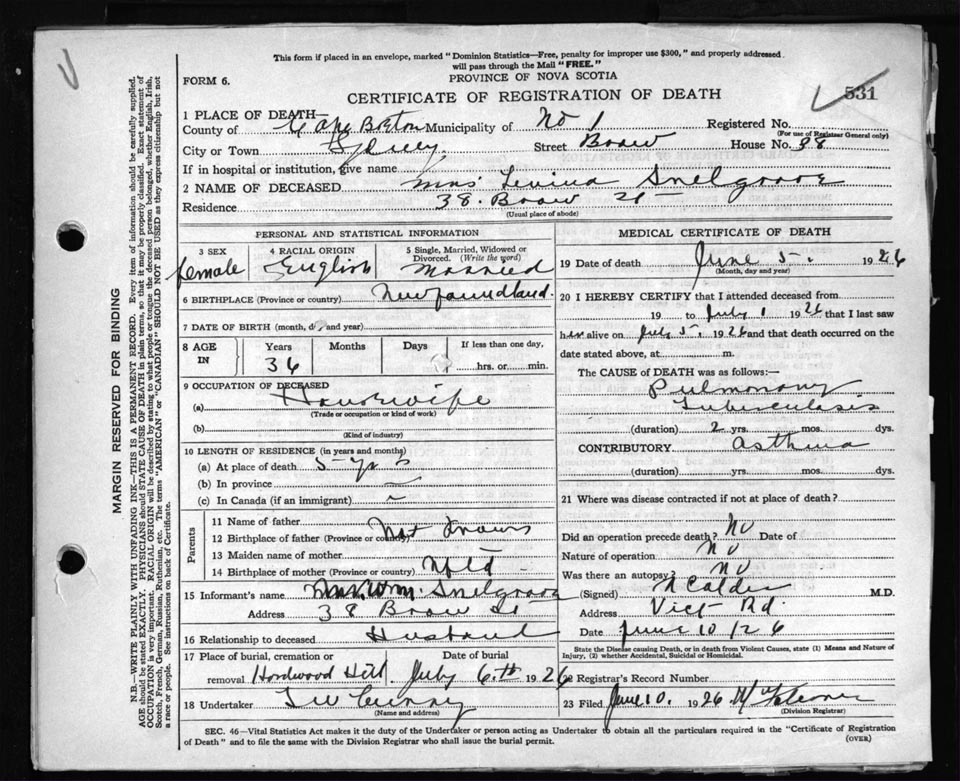 This form if placed in an envelope, marked "Dominion Statistics—Free, penalty for improper use $300," and properly addressed
will pass through the Mail "FREE."
PROVINCE OF NOVA SCOTIA
FORM 6.
CERTIFICATE OF REGISTRATION OF DEATH
531
1 PLACE OF DEATH—
County of Cape Breton Municipality of No 1 Registered No.
(For use of Registrar General only)
City or Town Sydney Street Broow House No. 38
If in hospital or institution, give name
2 NAME OF DECEASED Mrs Levina Snelgrove
Residence 38 Broow St
(Usual place of abode)
PERSONAL AND STATISTICAL INFORMATION
3 SEX 4 RACIAL ORIGIN 5 Single, Married, Widowed or Divorced. (Write the word)
female English Married
6 BIRTHPLACE (Province or country) Newfoundland.
7 DATE OF BIRTH (month, day and year)
8 AGE IN Years Months Days If less than one day,
36 hrs. or min.
9 OCCUPATION OF DECEASED
(a) Housewife
(Trade or occupation or kind of work)
(b)
(Kind of industry)
10 LENGTH OF RESIDENCE (in years and months)
(a) At place of death 5 yrs
(b) In province
(c) In Canada (if an immigrant)
Parents
11 Name of father
12 Birthplace of father (Province or country) Not Known
13 Maiden name of mother
14 Birthplace of mother (Province or country) Nfld
15 Informant's name Wm. Snelgrove
Address 38 Broow St
16 Relationship to deceased Husband
17 Place of burial, cremation or removal Hardwood Hill Date of burial July 6th 1926
18 Undertaker
(Name and address)
MEDICAL CERTIFICATE OF DEATH
19 Date of death June 5. 1926
(Month, day and year)
20 I HEREBY CERTIFY that I attended deceased from
19 to July 1 1926 that I last saw
her alive on July 5 1926 and that death occurred on the
date stated above, at m.
The CAUSE OF DEATH was as follows:—
Pulmonary
Tuberculosis
(duration) 2 yrs. mos. dys.
CONTRIBUTORY Asthma
(duration) yrs. mos. dys.
21 Where was disease contracted if not at place of death?
Did an operation precede death? No Date of
Nature of operation No
Was there an autopsy? No
(Signed) A Calder M.D.
Address Vict Rd.
Date June 10/26
State the Disease causing Death, or in death from Violent Causes, state (1) Means and Nature of
Injury, (2) whether Accidental, Suicidal or Homicidal.
22 Registrar's Record Number
23 Filed June 10. 1926
(Division Registrar)
SEC. 46—Vital Statistics Act makes it the duty of the Undertaker or person acting as Undertaker to obtain all the particulars required in the "Certificate of Registration
of Death" and to file the same with the Division Registrar who shall issue the burial permit.
(OVER)
MARGIN RESERVED FOR BINDING
N.B.—WRITE PLAINLY WITH UNFADING INK—THIS IS A PERMANENT RECORD. Every item of information should be carefully supplied.
AGE should be stated EXACTLY. PHYSICIANS should STATE CAUSE OF DEATH in plain terms, so that it may be properly classified. Exact statement of
OCCUPATION is very important. RACIAL ORIGIN will be described by stating to what people or tongue the deceased person belonged, whether English, Irish,
Scotch, French, German, Russian, Ruthenian, etc. The terms "AMERICAN" or "CANADIAN" SHOULD NOT BE USED as they express citizenship but not
a race or people. See instructions on back of Certificate.